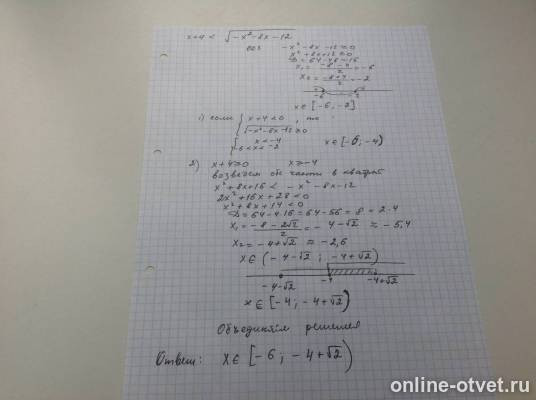 x+4 < √(-x²-8x-12)
ОДЗ -x²-8x-12≥0
x²+8x+12≤0
D=64-48=16
x₁= (-8-4)/2 =-6
x₂= (-8+4)/2 =-2
-6 -2
x∈[-6,-2]
1) если { x+4<0 , то
√(-x²-8x-12) ≥0
{ x<-4
-6≤x≤-2 x∈[-6;-4)
2) x+4≥0 x≥-4
возведем обе части в квадрат
x²+8x+16< -x²-8x-12
2x²+16x+28<0
x²+8x+14<0
D=64-4·14=64-56=8=2·4
x₁= (-8-2√2)/2 = -4-√2 ≈ -5,4
x₂=-4+√2 ≈ -2,6
x∈(-4-√2; -4+√2)
-4-√2 -4 -4+√2
x∈[-4; -4+√2)
Объединяем решения
Ответ: x∈[-6; -4+√2)
online-otvet.ru